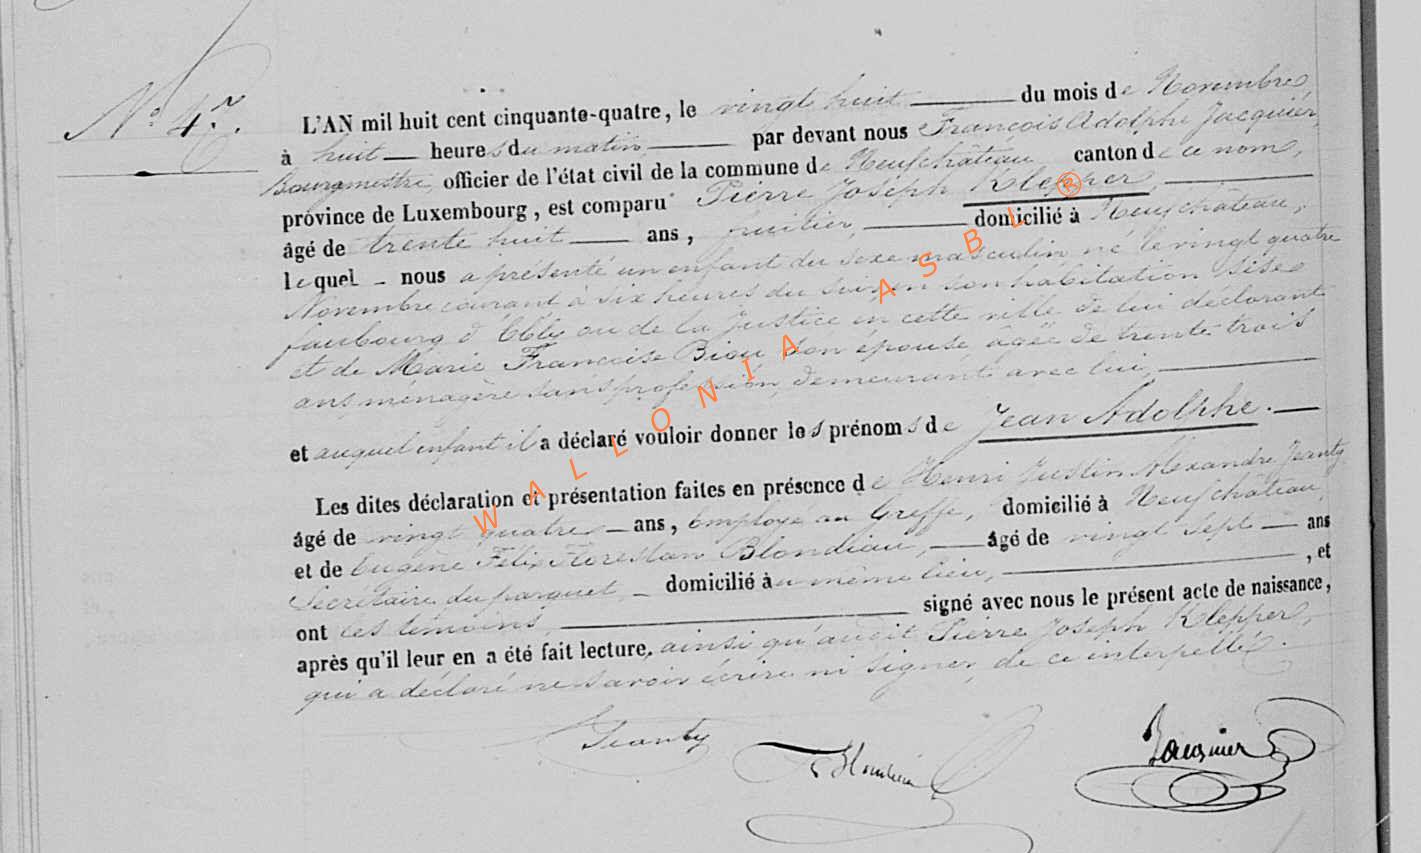 N.° 47.
L'AN mil huit cent cinquante-quatre, le vingt huit du mois de Novembre
à huit heures du matin, par devant nous François Adolphe Jacquier,
Bourgmestre, officier de l'état civil de la commune de Neufchâteau canton de ce nom,
province de Luxembourg, est comparu Pierre Joseph Klepper,
âgé de trente huit ans, domicilié à Neufchâteau,
lequel nous a présenté un enfant du sexe masculin né le vingt quatre
Novembre courant à six heures du soir en son habitation sise
faubourg d' ou de la Justice en cette ville de lui déclarant
et de Marie Françoise Biou son épouse âgée de trente trois
ans ménagère sans profession, demeurant avec lui,
et auquel enfant il a déclaré vouloir donner les prénoms de Jean Adolphe.
Les dites déclaration et présentation faites en présence de Henri Justin Alexandre Jeanty
âgé de vingt quatre ans, employé au Greffe, domicilié à Neufchâteau,
et de Eugène Félix Florestan Blondiau, âgé de vingt sept ans
Secrétaire du parquet, domicilié au même lieu, , et
ont les témoins, signé avec nous le présent acte de naissance,
après qu'il leur en a été fait lecture, ainsi qu'audit Pierre Joseph Klepper,
qui a déclaré ne savoir écrire ni signer, de ce interpellé.
Jeanty
Jacquier
WALLONIA ASBL ®